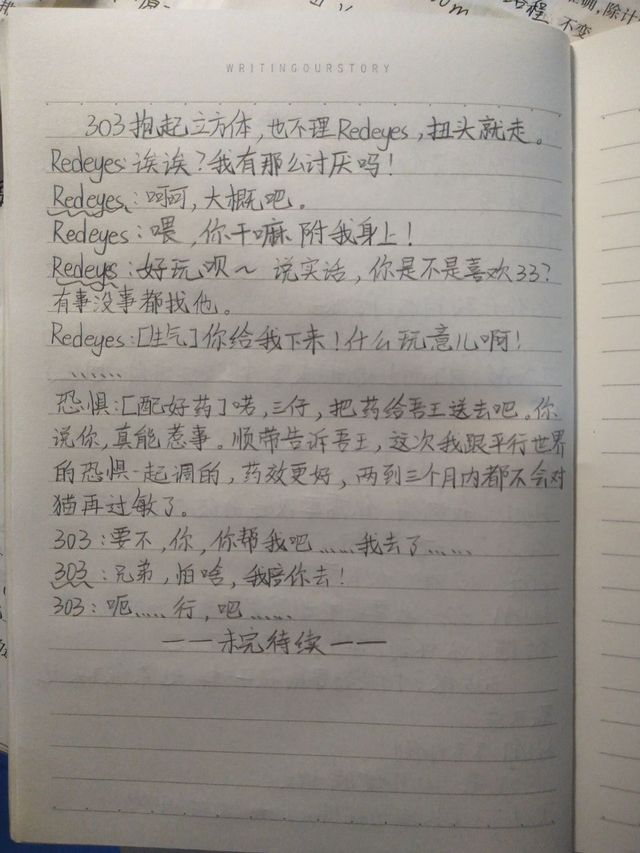 WRITINGOURSTORY
303抱起立方体,也不理Redeyes,扭头就走。
Redeyes:诶诶?我有那么讨厌吗!
Redeyes:呵呵,大概吧。
Redeyes:喂,你干嘛附我身上!
Redeyes:好玩呗~ 说实话,你是不是喜欢33?
有事没事都找他。
Redeyes:[生气]你给我下来!什么玩意儿啊!
……
恐惧:[配好药]喏,三仔,把药给吾王送去吧。你
说你,真能惹事。顺带告诉吾王,这次我跟平行世界
的恐惧一起调的,药效更好,两到三个月内都不会对
猫再过敏了。
303:要不,你,你帮我吧……我去了……
303:兄弟,怕啥,我陪你去!
303:呃……行,吧……
——未完待续——